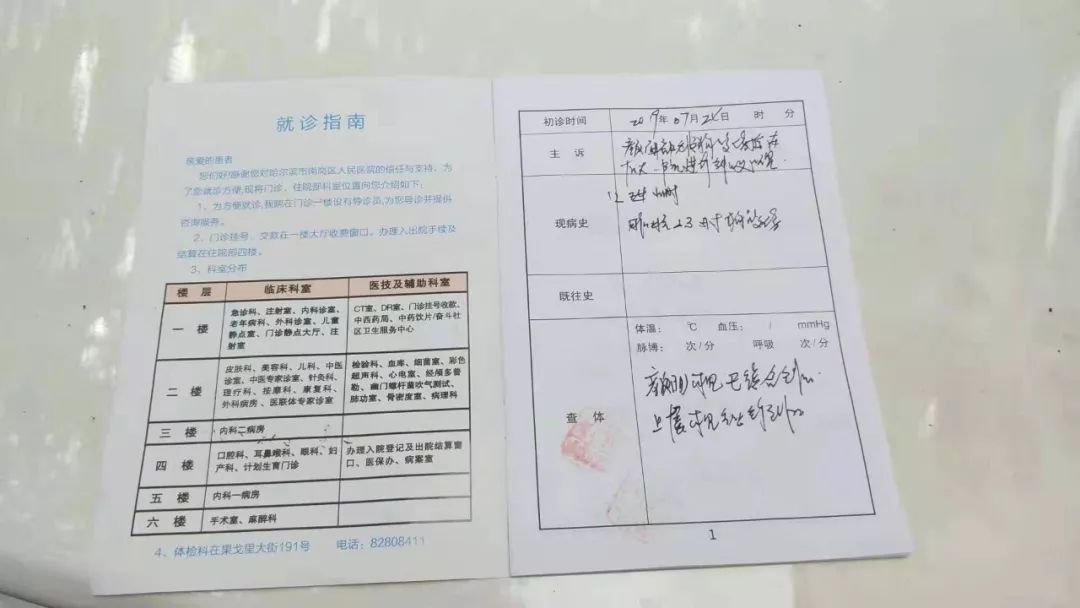 就诊指南
亲爱的患者
您们好!感谢您对哈尔滨市南岗区人民医院的信任与支持。为
了您就诊方便,现将门诊、住院部科室位置向您介绍如下:
1、为方便就诊,我院在门诊一楼设有导诊员,为您导诊并提供
咨询服务。
2、门诊挂号、交款在一楼大厅收费窗口。办理入出院手续及
结算在住院部四楼。
3、科室分布
楼 层 临床科室 医技及辅助科室
一 楼
急诊科、注射室、内科诊室、
老年病科、外科诊室、儿童
静点室、门诊静点大厅、注
射室
CT室、DR室、门诊挂号收款、
中西药局、中药饮片/奋斗社
区卫生服务中心
二 楼
皮肤科、美容科、儿科、中医
诊室、中医专家诊室、针灸科、
理疗科、按摩科、康复科、
外科病房、医联体专家诊室
检验科、血库、细菌室、彩色
超声科、心电室、经颅多普
勒、幽门螺杆菌吹气测试、
肺功室、骨密度室、病理科
三 楼 内科二病房
四 楼
口腔科、耳鼻喉科、眼科、妇
产科、计划生育门诊
办理入院登记及出院结算窗
口、医保办、病案室
五 楼 内科一病房
六 楼 手术室、麻醉科
4、体检科在果戈里大街191号 电话:82808411
初诊时间 2019年07月 日 时 分
主 诉
现病史
既往史
体温: ℃ 血压: / mmHg
脉博: 次/分 呼吸 次/分
查 体
1